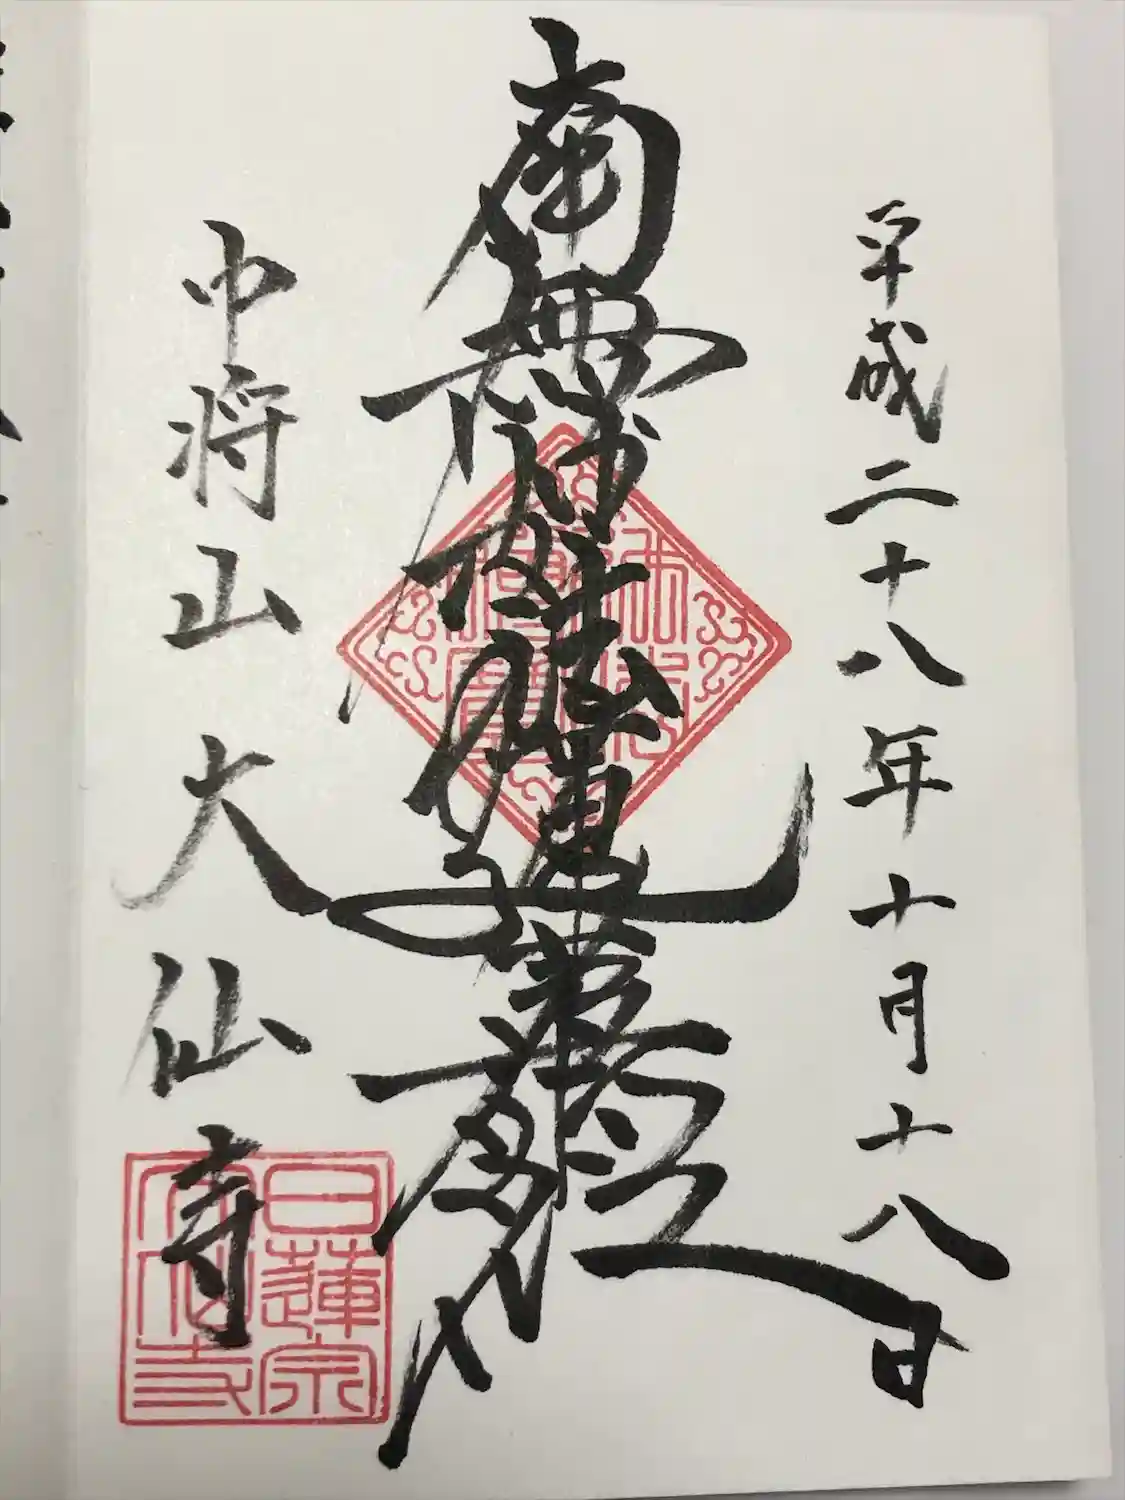 平成二十八年十月十八日
南無妙法蓮華経
佛法
僧寶
中将山大仙寺
日蓮宗
大仙寺